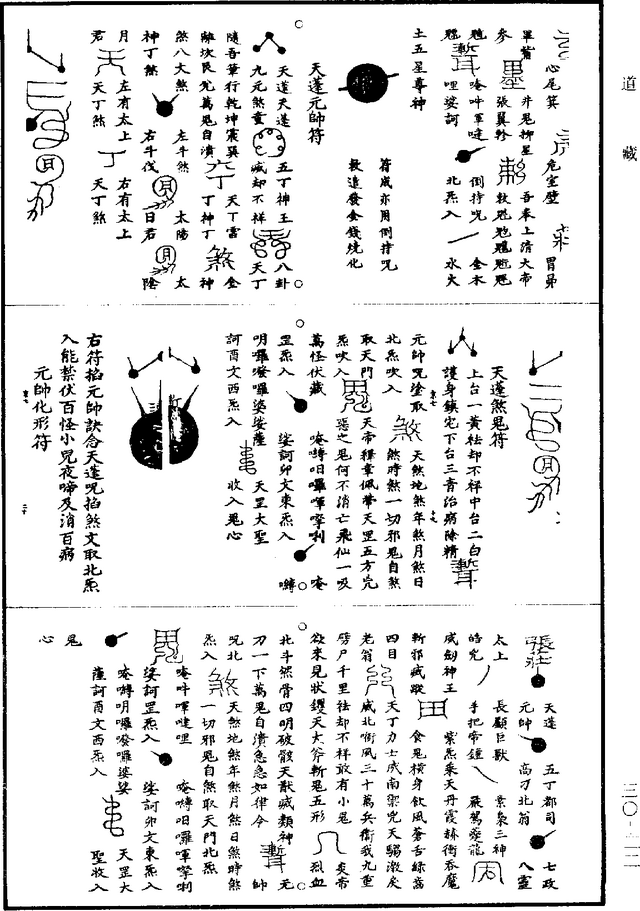 道藏
心尾箕
危室壁
胃昴
畢觜參
井鬼柳星張翼軫
吾奉上清大帝敕
唵吽軍噠哩娑訶
倒持咒
北炁入
金木水火
土五星尊神
符成亦用倒持咒
敕造發金錢燒化
天蓬元帥符
天蓬天蓬
九元煞童
五丁神王
滅却不祥
八卦
天丁
隨吾筆行乾坤震巽
離坎艮兌萬鬼自潰
天丁雷
丁神丁
金
神
煞八大煞
神丁煞
左斗煞
右斗伐
太陽
日君
太
陰
月
君
左有太上
天丁煞
右有太上
天丁煞
天蓬煞鬼符
上台一黃祛却不祥中台二白
護身鎮宅下台三青治病除精
元帥咒塗取
北炁吹入
天煞地煞年煞月煞日
煞時煞一切邪鬼自煞
取天門
炁吹入
天帝釋章佩帶天罡五方兇
惡之鬼何不消亡飛仙一吸
萬怪伏藏
罡炁入
唵嚩呬囉唓嚤利
娑訶卯文東炁入
唵
嚩
明囉癹囉娑婆薩
訶酉文西炁入
天罡大聖
收入鬼心
右符掐元帥訣念天蓬咒掐煞文取北炁
入能禁伏百怪小兒夜啼及消百病
元帥化形符
天蓬
元帥
五丁都司
高刁北翁
七政
八靈
太上
皓兇
長顱巨獸
手把帝鐘
素梟三神
嚴駕夔龍
威劍神王
斬邪滅蹤
紫炁乘天丹霞赫衝吞魔
食鬼橫身飲風蒼舌綠齒
四目
老翁
天丁力士威南禦兇天騶激戾
威北銜風三十萬兵衛我九重
劈尸千里祛却不祥敢有小鬼
欲來見狀钁天大斧斬鬼五形
炎帝
烈血
北斗然骨四明破骸天猷滅類神
刀一下萬鬼自潰急急如律令
元
帥
咒北
炁入
天煞地煞年煞月煞日煞時煞
一切邪鬼自煞取天門北炁
唵吽唓噠哩
娑訶罡炁入
唵嚩呬囉唓嚤利
娑訶卯文東炁入
唵嚩明囉癹囉婆娑
薩訶酉文西炁入
天罡大
聖收入
鬼
心